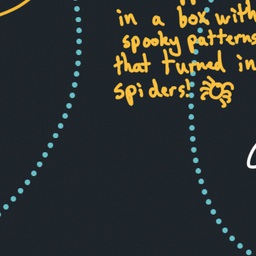 in a box with
spooky patterns
that turned in
spiders!